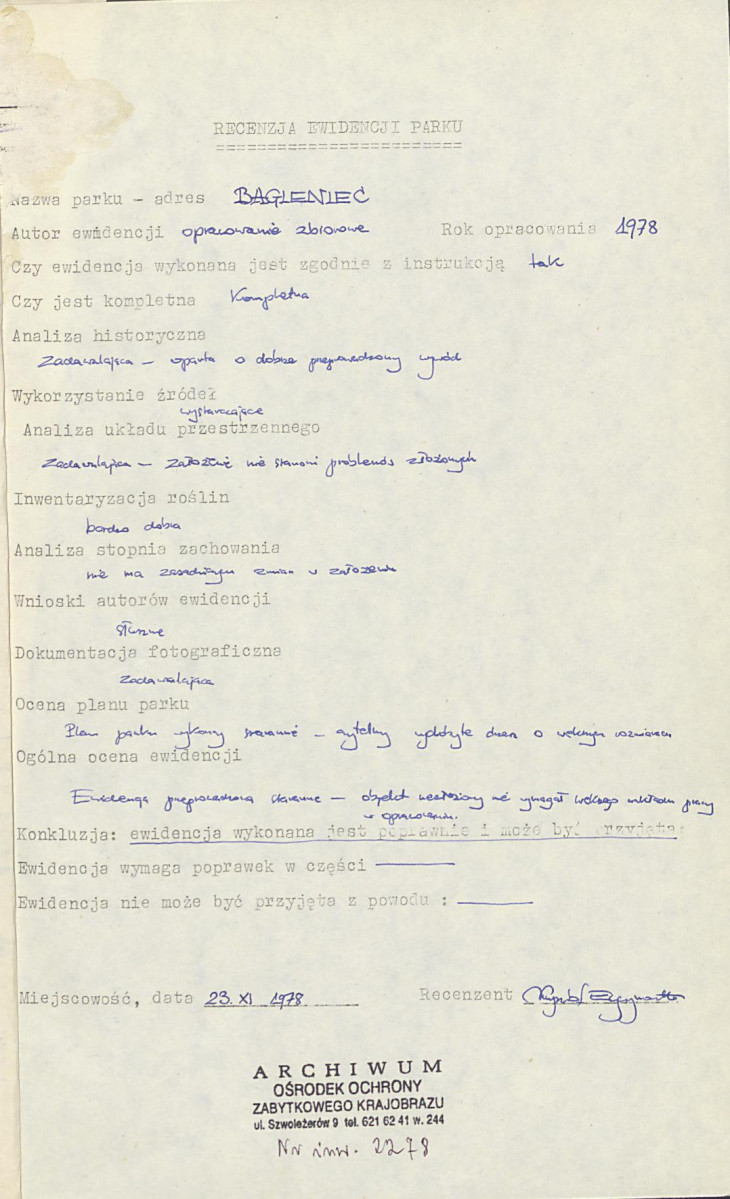 RECENZJA EWIDENCJI PARKU
========================
Nazwa parku - adres BAGIENIEC
Autor ewidencji opracowanie zbiorowe Rok opracowania 1978
Czy ewidencja wykonana jest zgodnie z instrukcją tak
Czy jest kompletna Kompletna
Analiza historyczna
Zadawalająca - oparta o dobrze przeprowadzony wywód
Wykorzystanie źródeł
wystarczające
Analiza układu przestrzennego
Zadawalająca - założenie nie stanowi problemów złożonych
Inwentaryzacja roślin
bardzo dobra
Analiza stopnia zachowania
nie ma zasadniczych zmian w założeniu
Wnioski autorów ewidencji
słuszne
Dokumentacja fotograficzna
zadawalająca
Ocena planu parku
Plan parku wykonany starannie - czytelny drzew o wymiarach
Ogólna ocena ewidencji
Ewidencja przeprowadzona starannie - obiekt niezłożony nie wymagał wkładu pracy
w opracowaniu.
Konkluzja: ewidencja wykonana jest poprawnie i może być przyjęta
Ewidencja wymaga poprawek w części
Ewidencja nie może być przyjęta z powodu :
Miejscowość, data 23. XI 1978 Recenzent
ARCHIWUM
OŚRODEK OCHRONY
ZABYTKOWEGO KRAJOBRAZU
ul. Szwoleżerów 9 tel. 621 62 41 w. 244
Nr inw. 2278